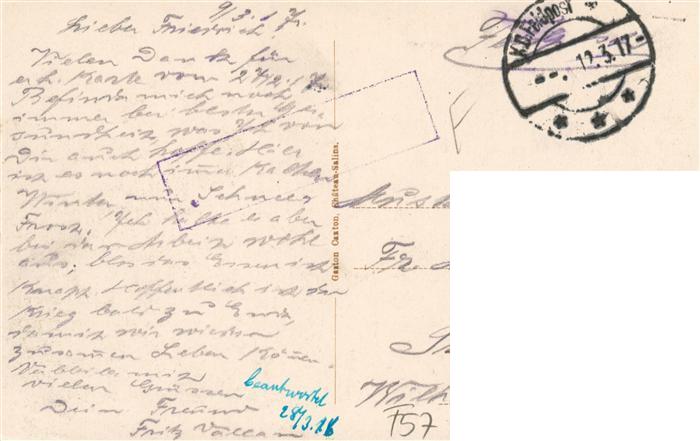 9/3.17.
Lieber Friedrich!
Vielen Dank für
erh. Karte vom 2/2.17.
Befinde mich noch
immer bei bester Ge-
sundheit, was ich von
Dir auch hoffe. Hier
ist es noch immer kalter
Winter mit Schnee u
Frost. Ich halte es aber
bei der Arbeit wohl
aus, blos das Essen ist
knapp. Hoffentlich ist der
Krieg bald zu Ende,
damit wir wieder
zusammen leben können.
Verbleibe mit
vielen Grüssen
Dein Freund
Fritz
beantwortet
28/3.17
Gaston Caxton, Château-Salins.
K.D. Feldpost
12.3.17
F
Wilh
T57